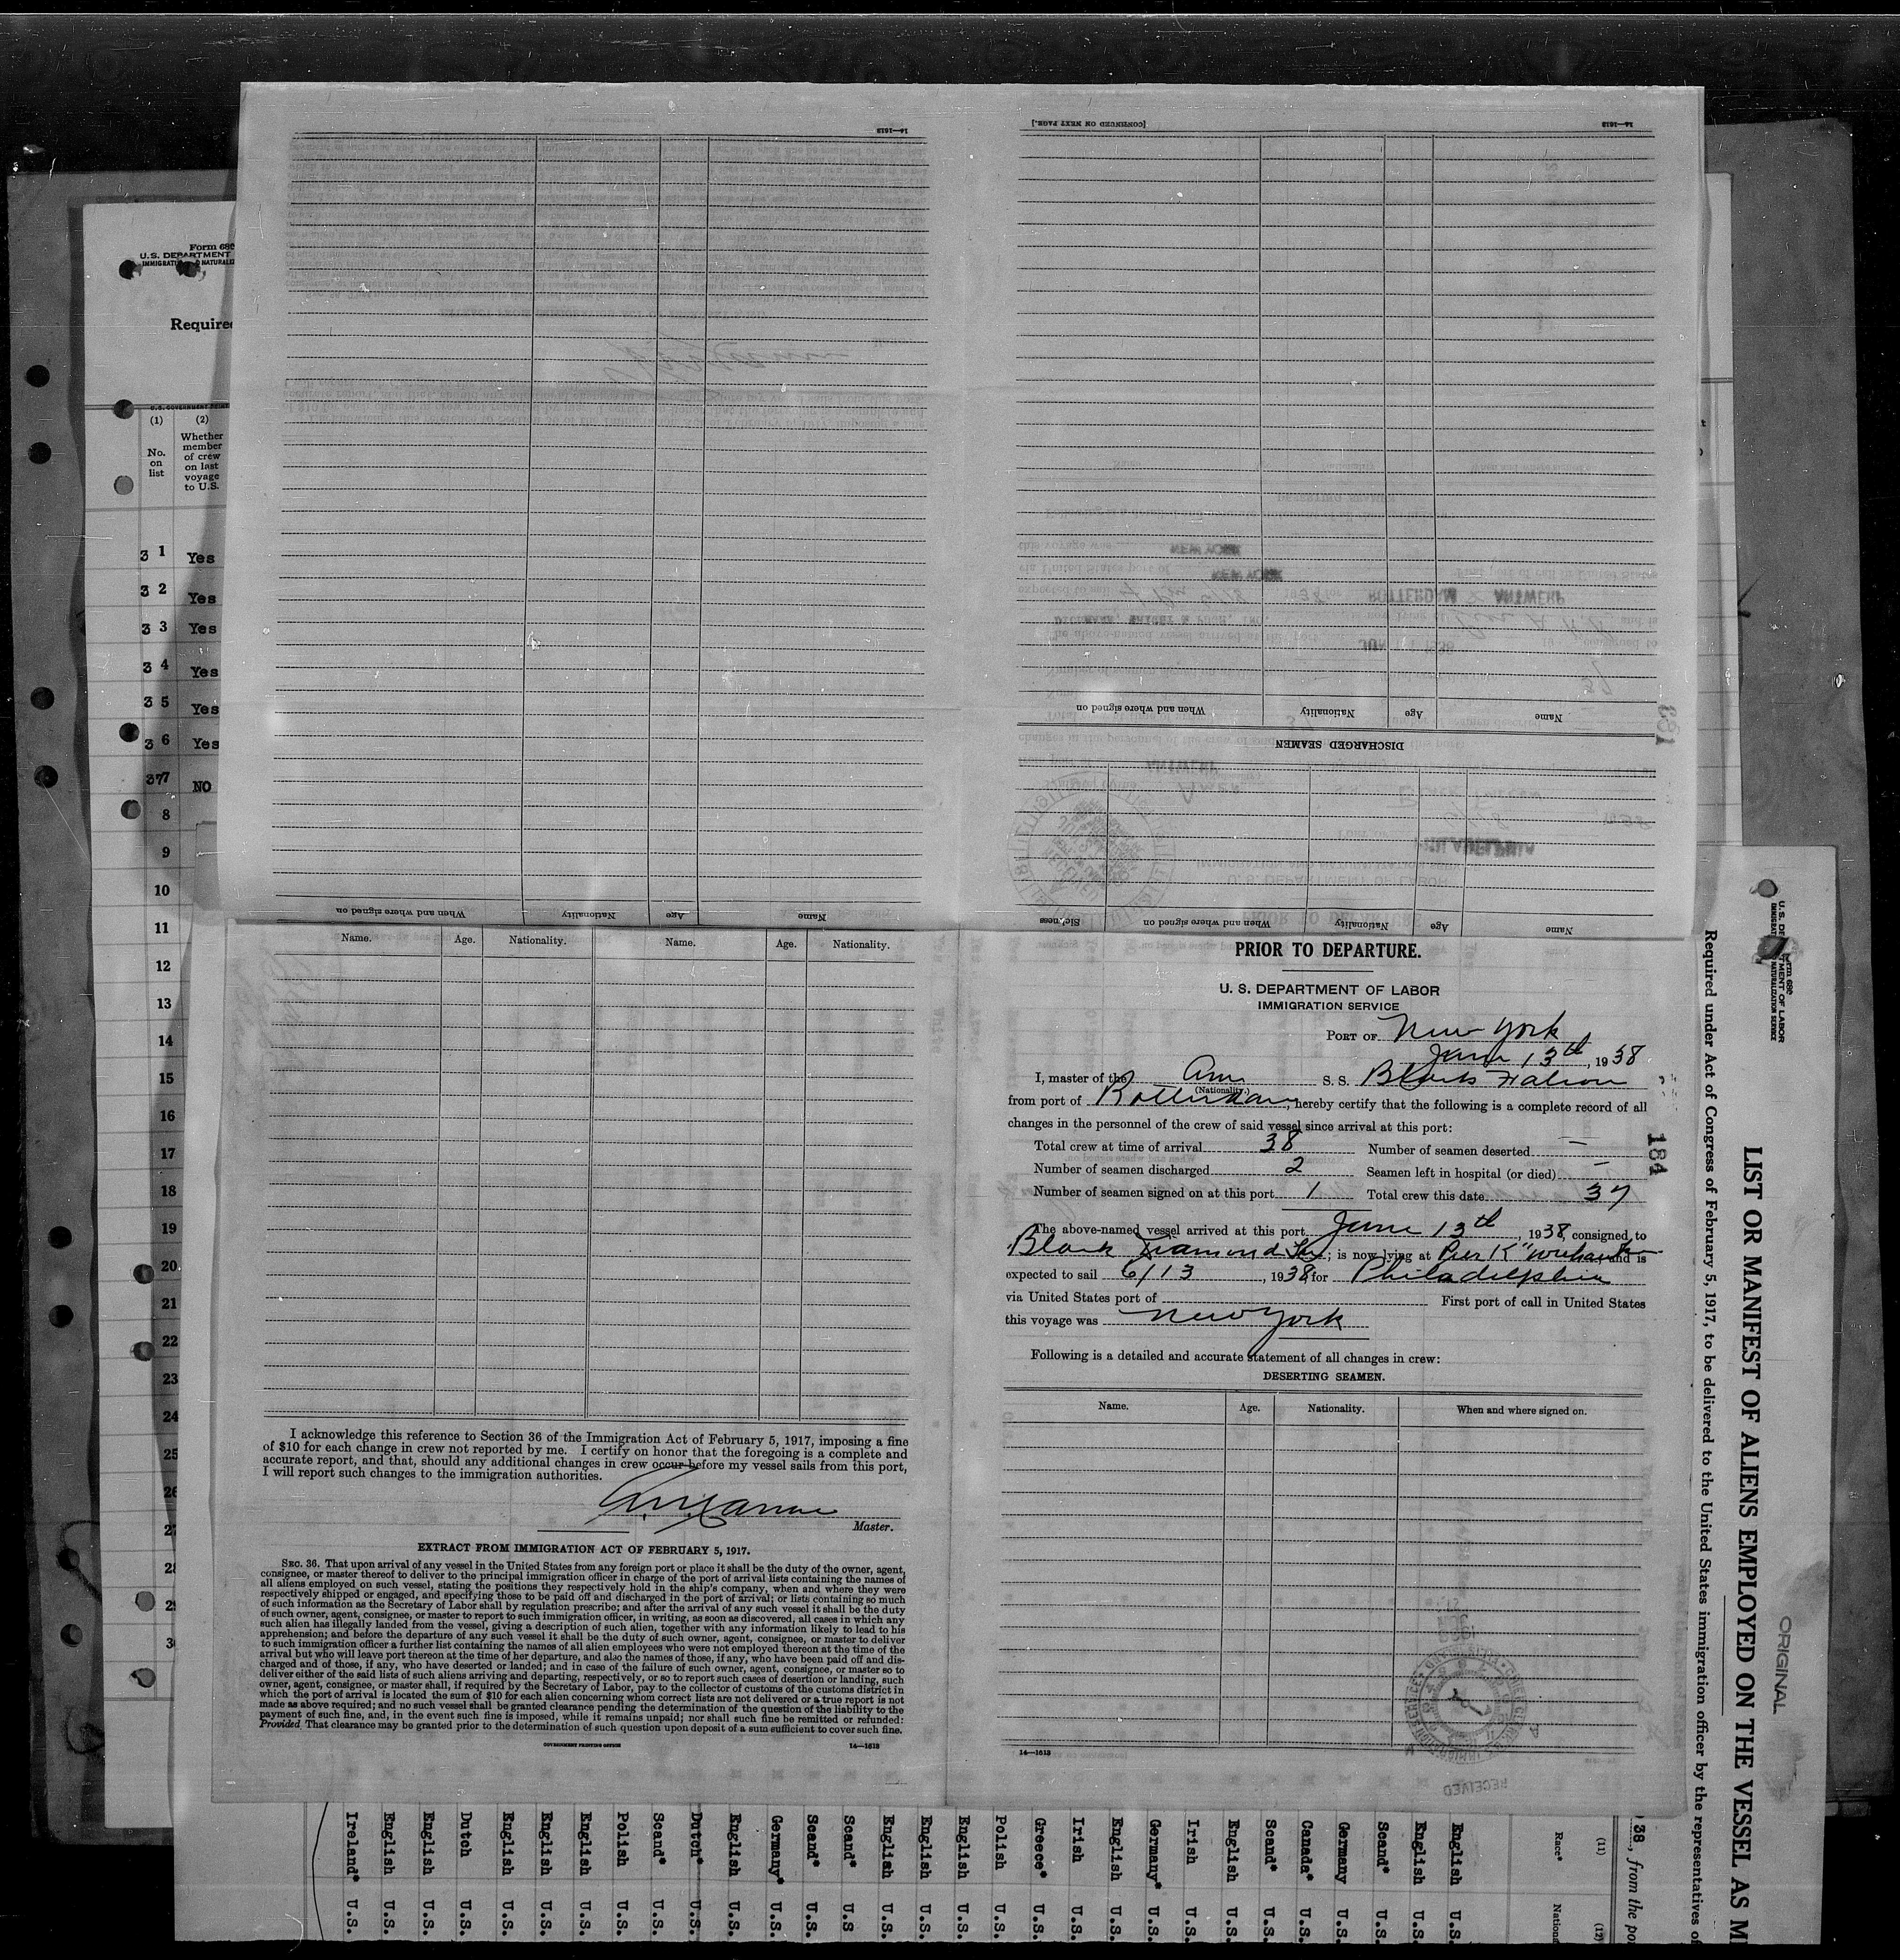 Form 680
U.S. DEPARTMENT
Required
(1)
(2)
No.
on
list
Whether
member
of crew
on last
voyage
to U.S.
3 1 Yes
3 2 Yes
3 3 Yes
3 4 Yes
3 5 Yes
3 6 Yes
NO
8
9
10
11
12
13
14
15
16
17
18
19
20
21
22
23
24
25
26
28
14—1613
When and where signed on
Nationality
Age
Name
[CONTINUED ON NEXT PAGE.]
14—1613
When and where signed on
Nationality
Age
Name
DISCHARGED SEAMEN
Sickness
When and where signed on
Nationality
Age
Name
Name. Age. Nationality. Name. Age. Nationality.
I acknowledge this reference to Section 36 of the Immigration Act of February 5, 1917, imposing a fine
of $10 for each change in crew not reported by me. I certify on honor that the foregoing is a complete and
accurate report, and that, should any additional changes in crew occur before my vessel sails from this port,
I will report such changes to the immigration authorities.
Master.
EXTRACT FROM IMMIGRATION ACT OF FEBRUARY 5, 1917.
SEC. 36. That upon arrival of any vessel in the United States from any foreign port or place it shall be the duty of the owner, agent,
consignee, or master thereof to deliver to the principal immigration officer in charge of the port of arrival lists containing the names of
all aliens employed on such vessel, stating the positions they respectively hold in the ship's company, when and where they were
respectively shipped or engaged, and specifying those to be paid off and discharged in the port of arrival; or lists containing so much
of such information as the Secretary of Labor shall by regulation prescribe; and after the arrival of any such vessel it shall be the duty
of such owner, agent, consignee, or master to report to such immigration officer, in writing, as soon as discovered, all cases in which any
such alien has illegally landed from the vessel, giving a description of such alien, together with any information likely to lead to his
apprehension; and before the departure of any such vessel it shall be the duty of such owner, agent, consignee, or master to deliver
to such immigration officer a further list containing the names of all alien employees who were not employed thereon at the time of the
arrival but who will leave port thereon at the time of her departure, and also the names of those, if any, who have been paid off and dis-
charged and of those, if any, who have deserted or landed; and in case of the failure of such owner, agent, consignee, or master so to
deliver either of the said lists of such aliens arriving and departing, respectively, or so to report such cases of desertion or landing, such
owner, agent, consignee, or master shall, if required by the Secretary of Labor, pay to the collector of customs of the customs district in
which the port of arrival is located the sum of $10 for each alien concerning whom correct lists are not delivered or a true report is not
made as above required; and no such vessel shall be granted clearance pending the determination of the question of the liability to the
payment of such fine, and, in the event such fine is imposed, while it remains unpaid; nor shall such fine be remitted or refunded:
Provided That clearance may be granted prior to the determination of such question upon deposit of a sum sufficient to cover such fine.
GOVERNMENT PRINTING OFFICE 14—1613
PRIOR TO DEPARTURE.
U. S. DEPARTMENT OF LABOR
IMMIGRATION SERVICE
PORT OF New York
June 13th, 1938
I, master of the Am S. S. Black Falcon
(Nationality.)
from port of Rotterdam, hereby certify that the following is a complete record of all
changes in the personnel of the crew of said vessel since arrival at this port:
Total crew at time of arrival 38 Number of seamen deserted —
Number of seamen discharged 2 Seamen left in hospital (or died) —
Number of seamen signed on at this port 1 Total crew this date 37
The above-named vessel arrived at this port June 13th, 1938, consigned to
Black Diamond; is now lying at Pier K Weehawken and is
expected to sail 6/13, 1938, for Philadelphia
via United States port of First port of call in United States
this voyage was New York
Following is a detailed and accurate statement of all changes in crew:
DESERTING SEAMEN.
Name. Age. Nationality. When and where signed on.
14—1613
RECEIVED
184
LIST OR MANIFEST OF ALIENS EMPLOYED ON THE VESSEL AS
Required under Act of Congress of February 5, 1917, to be delivered to the United States immigration officer by the representatives of
ORIGINAL
38, from the
(11)
(12)
Race*
English U.S.
English U.S.
Scand* U.S.
Germany U.S.
Canada* U.S.
Scand* U.S.
English U.S.
Irish U.S.
Germany* U.S.
English U.S.
Irish U.S.
Greece* U.S.
Polish U.S.
English U.S.
English U.S.
English U.S.
Scand* U.S
Scand* U.S.
Germany* U.S.
English U.S.
Dutch* U.S.
Scand* U.S.
Polish U.S.
English U.S.
English U.S.
English U.S.
Dutch U.S.
English U.S.
English U.S.
Ireland* U.S.